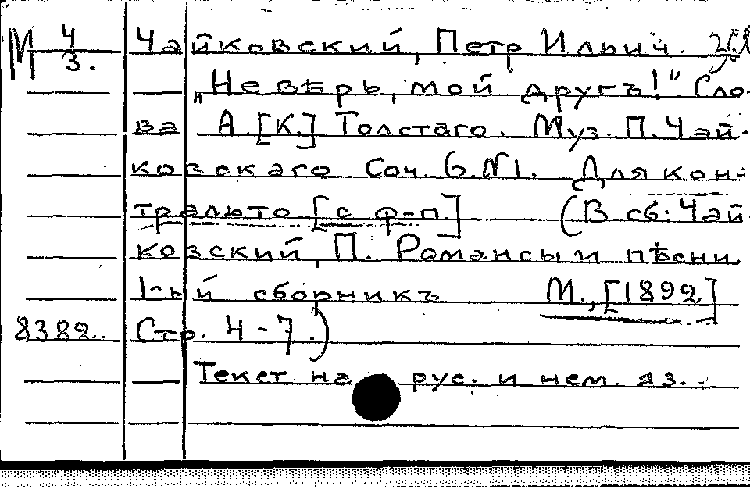 М 4/3. Чайковский, Петр Ильич.
„Не вѣрь, мой другъ!" Сло-
ва А [К.] Толстаго. Муз. П. Чай-
ковскаго Соч. 6. №1. Для кон-
тральто [с ф-п] (В сб: Чай-
ковский, П. Романсы и пѣсни
1-ый сборникъ М., [1892]
8382. Стр. 4-7.)
Текст на рус. и нем. яз.